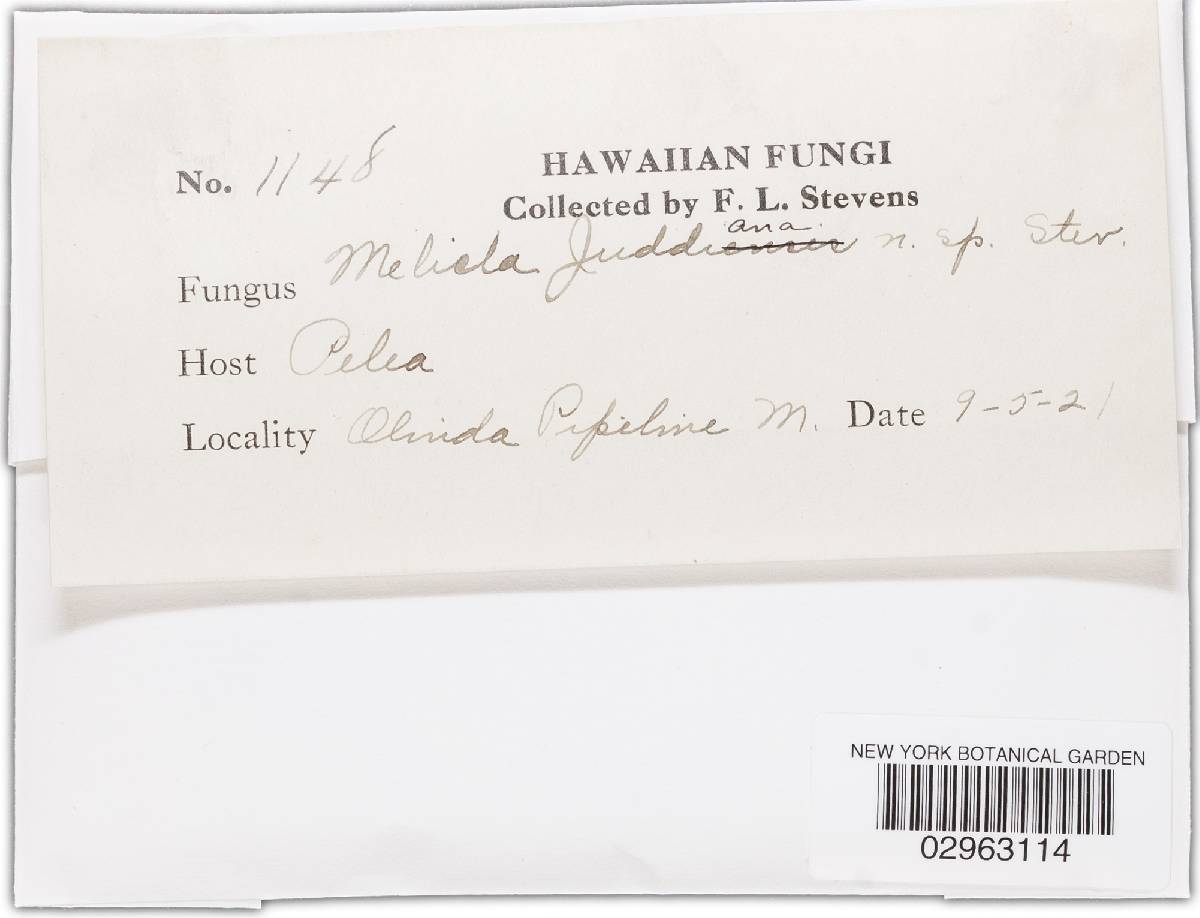 No. 1148
HAWAIIAN FUNGI
Collected by F. L. Stevens
Fungus Meliola Juddiana n. sp. Stev.
Host Pelea
Locality Olinda Pipeline M. Date 9-5-21
NEW YORK BOTANICAL GARDEN
02963114